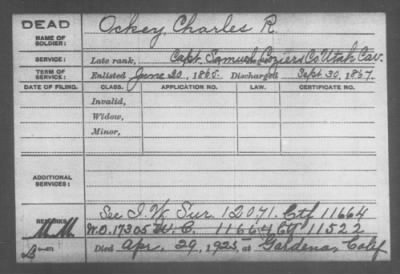 DEAD
NAME OF SOLDIER:
Ockey, Charles R.
SERVICE:
Late rank, Capt. Samuel Co Utah Cav.
TERM OF SERVICE:
Enlisted June 20, 186 Discharged Sept. 30, 1867.
DATE OF FILING. CLASS. APPLICATION NO. LAW. CERTIFICATE NO.
Invalid,
Widow,
Minor,
ADDITIONAL SERVICES:
See I. W. Sur 12071. Ctf 11664
REMARKS: W.O. 17305 W. C. 11664 Ctf 11522
Died Apr. 29, 1925, at Gardena, Calif